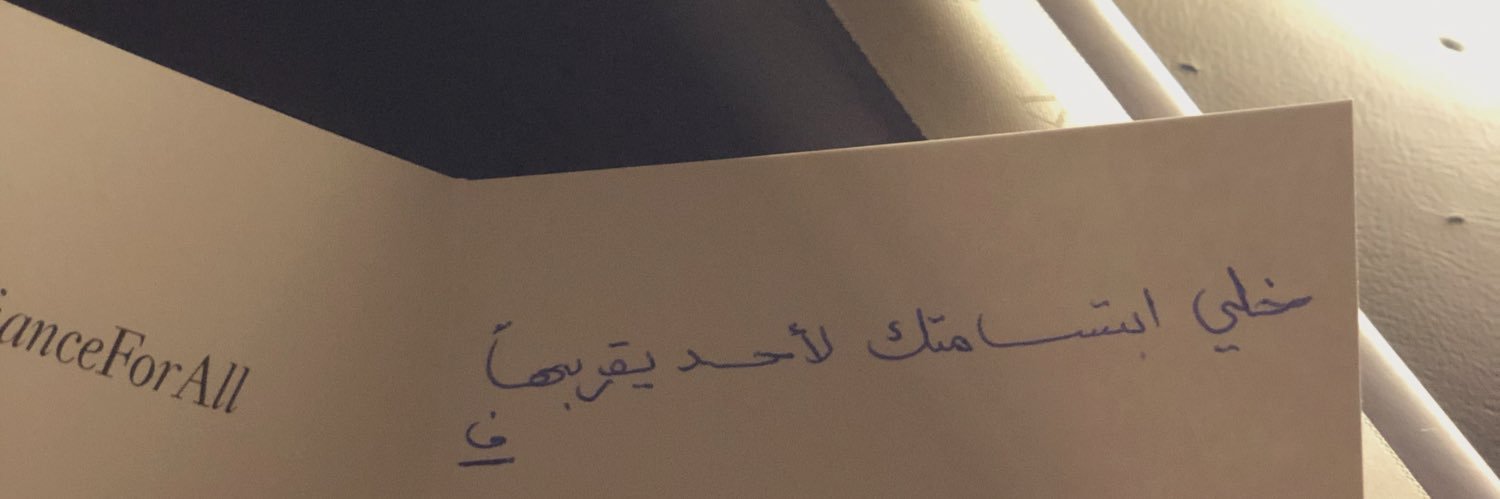 ianceForAll
خلي ابتسامتك لأحد يقربهاً
ف